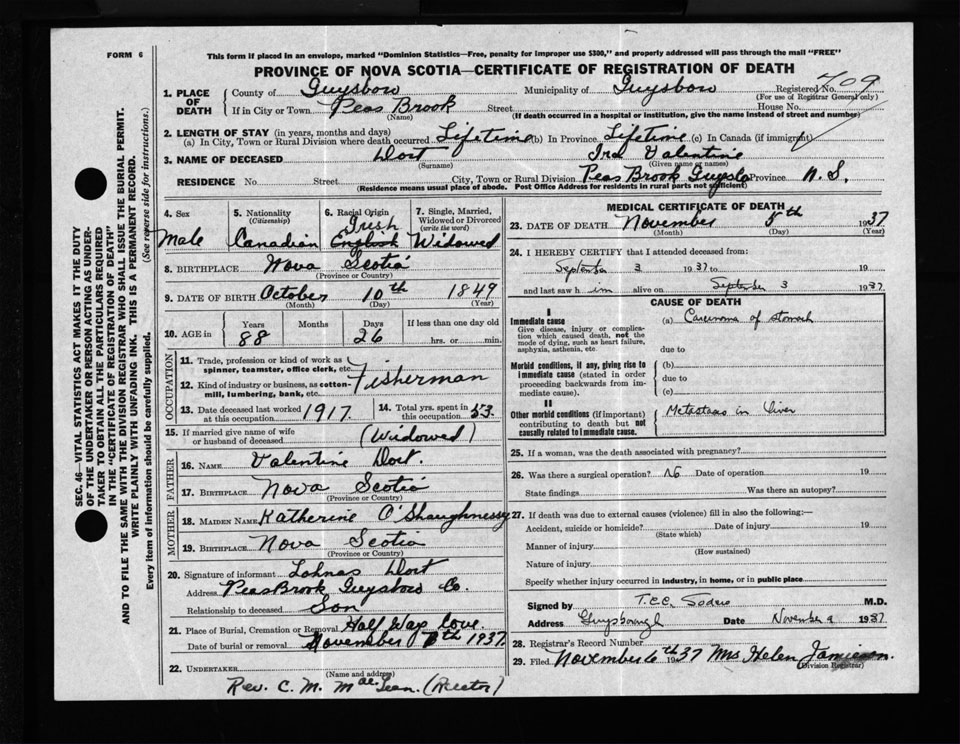 FORM 6
This form if placed in an envelope, marked "Dominion Statistics—Free, penalty for improper use $300," and properly addressed will pass through the mail "FREE"
PROVINCE OF NOVA SCOTIA—CERTIFICATE OF REGISTRATION OF DEATH
SEC. 46—VITAL STATISTICS ACT MAKES IT THE DUTY
OF THE UNDERTAKER OR PERSON ACTING AS UNDER-
TAKER TO OBTAIN ALL THE PARTICULARS REQUIRED
IN THE "CERTIFICATE OF REGISTRATION OF DEATH"
AND TO FILE THE SAME WITH THE DIVISION REGISTRAR WHO SHALL ISSUE THE BURIAL PERMIT.
WRITE PLAINLY WITH UNFADING INK. THIS IS A PERMANENT RECORD.
Every item of information should be carefully supplied. (See reverse side for instructions.)
1. PLACE OF DEATH County of Guysboro Municipality of Guysboro Registered No. 709
(For use of Registrar General only)
If in City or Town Peas Brook Street House No.
(Name) (If death occurred in a hospital or institution, give the name instead of street and number)
2. LENGTH OF STAY (in years, months and days)
(a) In City, Town or Rural Division where death occurred Lifetime (b) In Province Lifetime (c) In Canada (if immigrant)
3. NAME OF DECEASED Dort Ira Valentine
(Surname) (Given name or names)
RESIDENCE No. Street City, Town or Rural Division Peas Brook Guysbo Province N. S.
(Residence means usual place of abode. Post Office Address for residents in rural parts not sufficient)
4. Sex Male
5. Nationality (Citizenship) Canadian
6. Racial Origin Irish English
7. Single, Married, Widowed or Divorced (write the word) Widowed
8. BIRTHPLACE Nova Scotia
(Province or Country)
9. DATE OF BIRTH October 10th 1849
(Month) (Day) (Year)
10. AGE in Years 88 Months Days 26 If less than one day old hrs. or min.
OCCUPATION
11. Trade, profession or kind of work as spinner, teamster, office clerk, etc.
Fisherman
12. Kind of industry or business, as cotton-mill, lumbering, bank, etc.
13. Date deceased last worked at this occupation 1917.
14. Total yrs. spent in this occupation 53
15. If married give name of wife or husband of deceased (Widowed)
FATHER
16. NAME Valentine Dort.
17. BIRTHPLACE Nova Scotia
(Province or Country)
MOTHER
18. MAIDEN NAME Katherine O'Shaughnessy
19. BIRTHPLACE Nova Scotia
(Province or Country)
20. Signature of informant Dort
Address Peas Brook Guysboro Co.
Relationship to deceased Son
21. Place of Burial, Cremation or Removal Half Way Cove.
Date of burial or removal November 1937.
22. UNDERTAKER
(Name and address)
Rev. C. M. (Rector)
MEDICAL CERTIFICATE OF DEATH
23. DATE OF DEATH November 5th 1937
(Month) (Day) (Year)
24. I HEREBY CERTIFY that I attended deceased from:
September 3 1937 to 19
and last saw him alive on September 3 1937
CAUSE OF DEATH
I
Immediate cause
Give disease, injury or complica-
tion which caused death, not the
mode of dying, such as heart failure,
asphyxia, asthenia, etc.
(a) Carcinoma of stomach
due to
Morbid conditions, if any, giving rise to
immediate cause (stated in order
proceeding backwards from im-
mediate cause).
(b)
due to
(c)
II
Other morbid conditions (if important)
contributing to death but not
causally related to immediate cause.
Metastases in liver
25. If a woman, was the death associated with pregnancy?
26. Was there a surgical operation? No Date of operation 19
State findings Was there an autopsy?
27. If death was due to external causes (violence) fill in also the following:—
Accident, suicide or homicide? Date of injury 19
(State which)
Manner of injury
(How sustained)
Nature of injury
Specify whether injury occurred in industry, in home, or in public place
Signed by M.D.
Address Guysborough Date November 9 1937
28. Registrar's Record Number
29. Filed November 6th 1937 Mrs Helen Jamieson.
(Division Registrar)